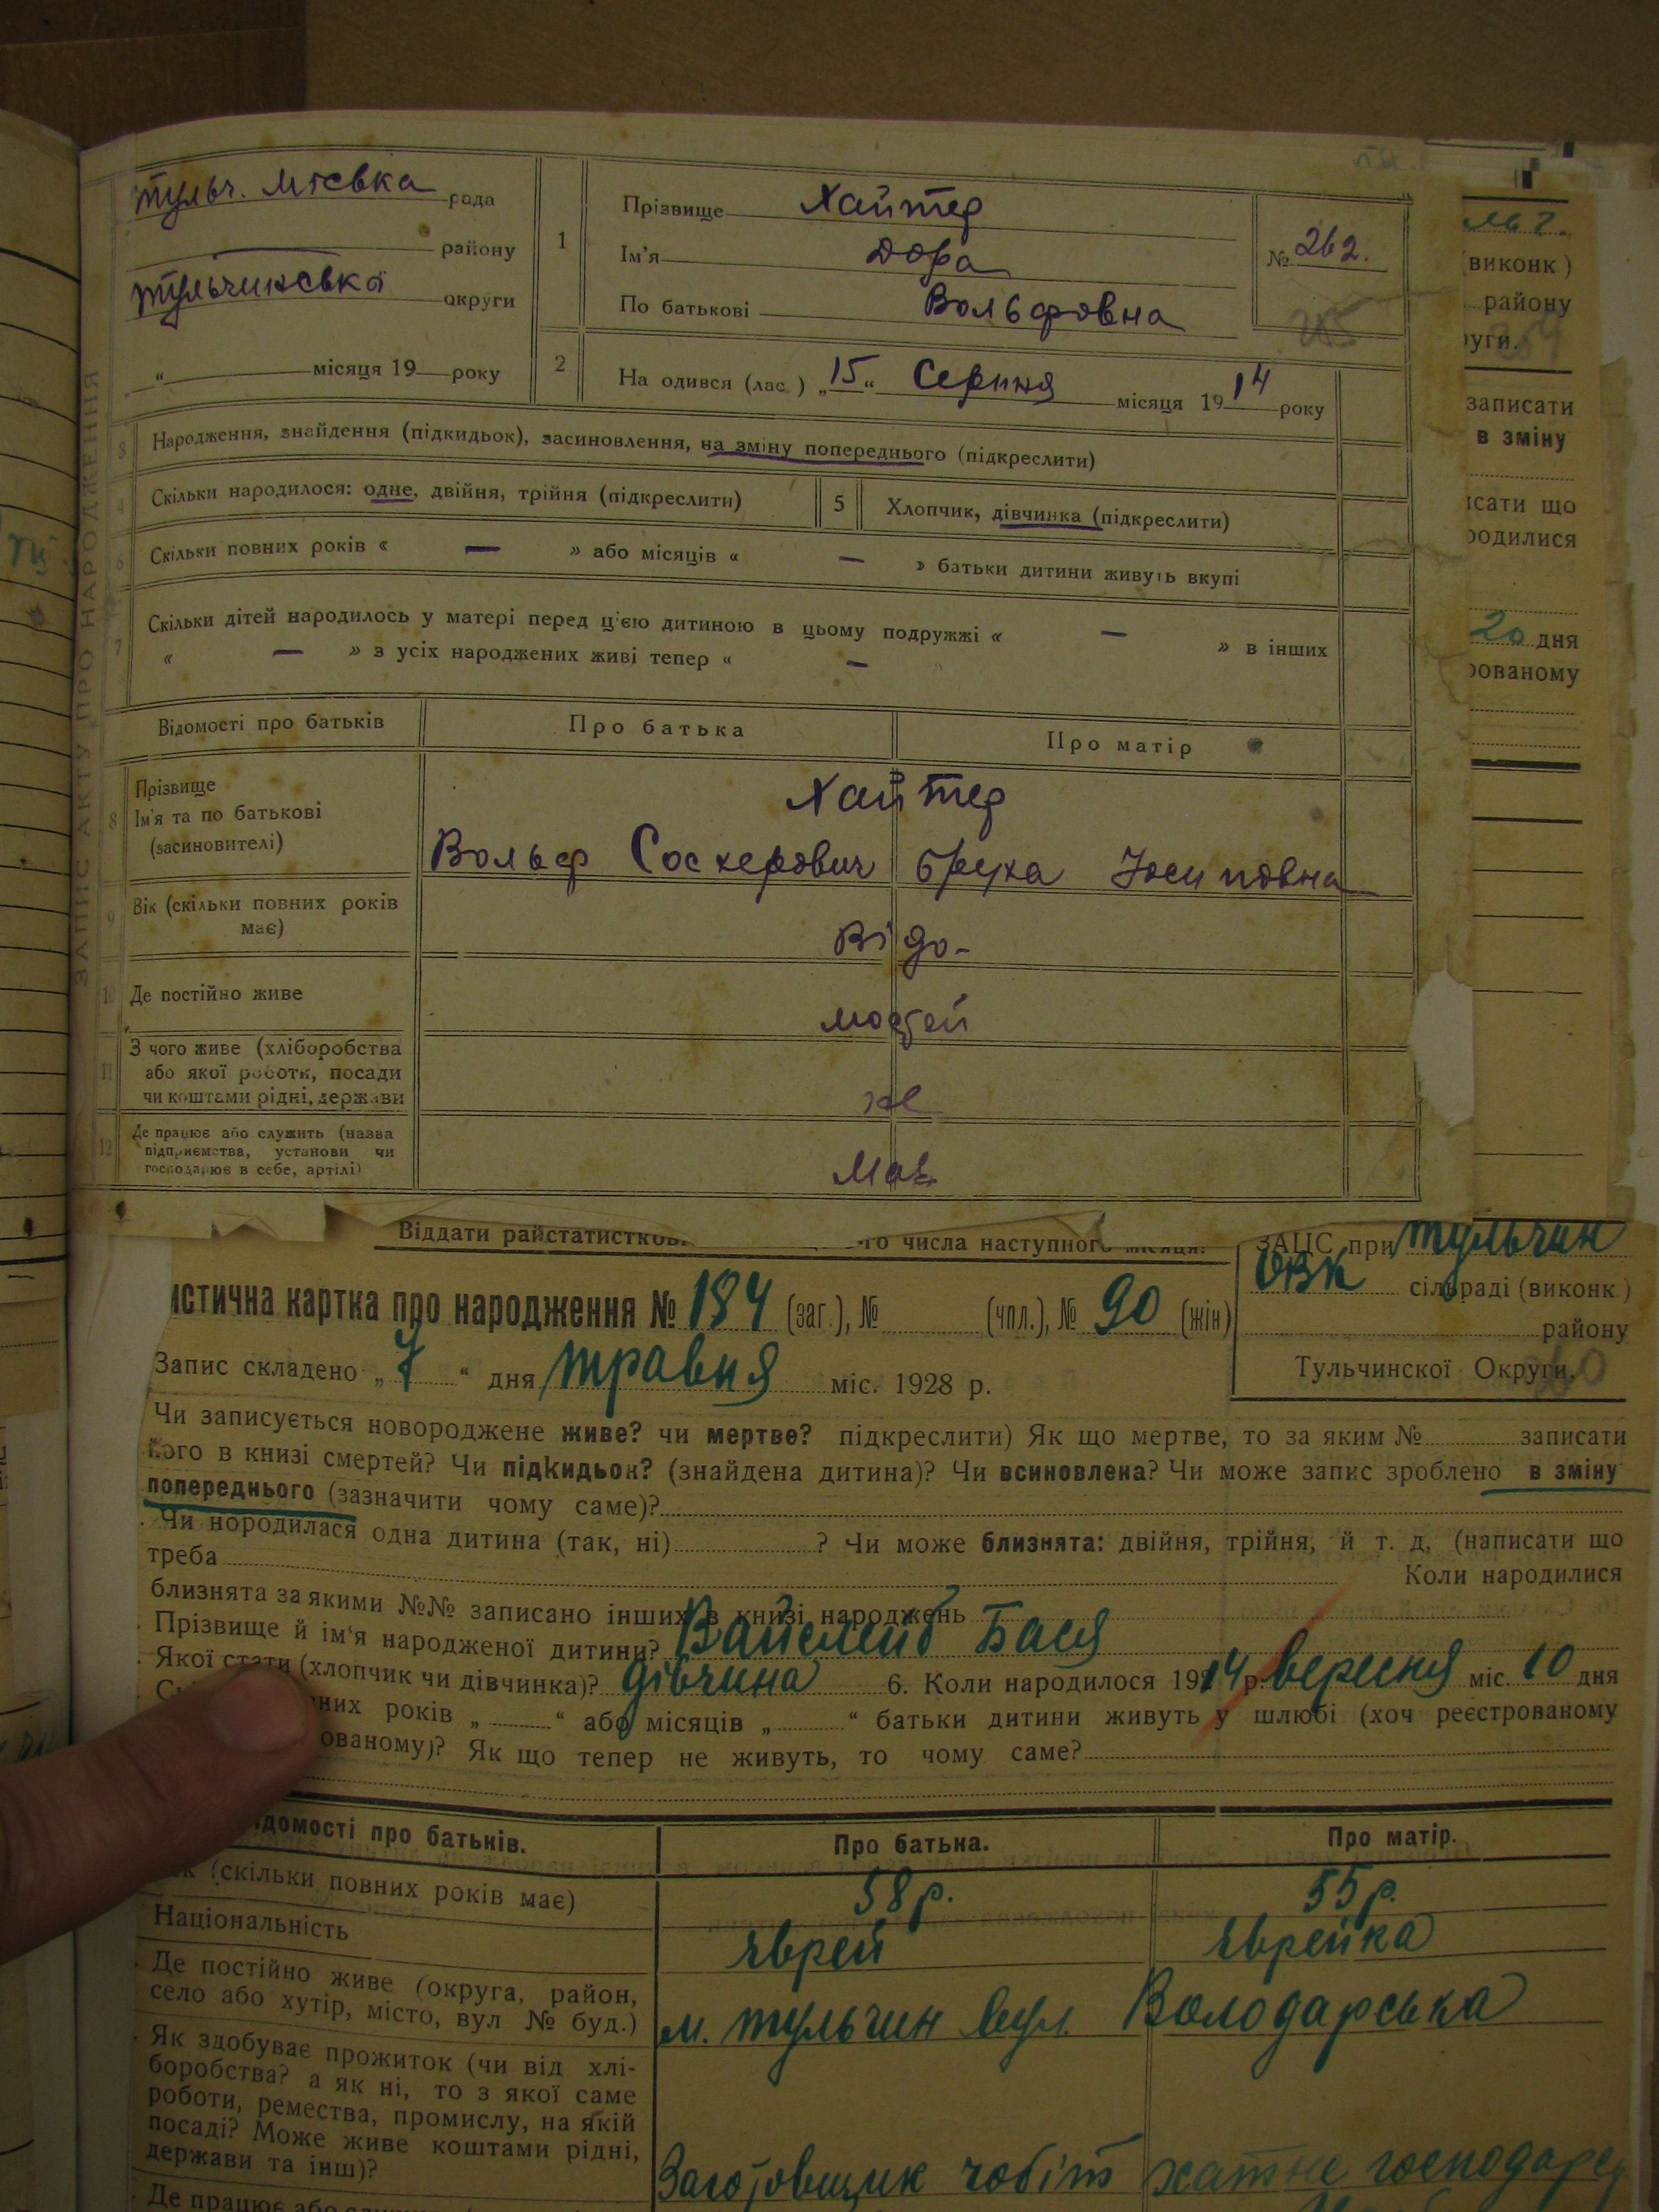 Тульч. Міська рада
району
Тульчинська округи
„ “ місяця 19 року
1
Прізвище Хайтер
Ім'я Дора
По батькові Вольфовна
№ 262.
2
На одився (лас ) „15“ Серпня місяця 1914 року
ЗАПИС АКТУ ПРО НАРОДЖЕННЯ
3 Народження, знайдення (підкидьок), засиновлення, на зміну попереднього (підкреслити)
4 Скільки народилося: одне, двійня, трійня (підкреслити) 5 Хлопчик, дівчинка (підкреслити)
6 Скільки повних років « — » або місяців « — » батьки дитини живуть вкупі
7 Скільки дітей народилось у матері перед ц'єю дитиною в цьому подружжі « — » в інших
« — » з усіх народжених живі тепер « —
Відомості про батьків Про батька Про матір
8 Прізвище
Ім'я та по батькові
(засиновителі)
Хайтер
Вольф Соскерович Брука Йосиповна
9 Вік (скільки повних років
має)
Відо-
10 Де постійно живе
мостей
11 З чого живе (хліборобства
або якої роботи, посади
чи коштами рідні, держави
не
12 Де працює або служить (назва
підприємства, установи чи
господарює в себе, артілі)
Має
(виконк.)
району
руги.
записати
в зміну
исати що
родилися
20 дня
рованому
Віддати райстатистков
го числа наступного місяця.
ЗАЦС при Тульчин
ОВК сільраді (виконк.)
району
Тульчинскої Округи.
истична картка про народження № 184 (заг.), № (чпл.), № 90 (жін)
Запис складено „7“ дня травня міс. 1928 р.
Чи записується новороджене живе? чи мертве? підкреслити) Як що мертве, то за яким № записати
його в книзі смертей? Чи підкидьок? (знайдена дитина)? Чи всиновлена? Чи може запис зроблено в зміну
попереднього (зазначити чому саме)?
Чи нородилася одна дитина (так, ні) ? Чи може близнята: двійня, трійня, й т. д. (написати що
треба Коли народилися
близнята за якими №№ записано інших в книзі народжень
Прізвище й ім'я народженої дитини? Вайслейб Бася
Якої стати (хлопчик чи дівчинка)? дівчина 6. Коли народилося 1914 р. вересня міс. 10 дня
них років „ “ або місяців „ “ батьки дитини живуть у шлюбі (хоч реєстрованому
ованому)? Як що тепер не живуть, то чому саме?
домості про батьків. Про батька. Про матір.
(скільки повних років має) 58 р. 55 р.
Національність яврей яврейка
Де постійно живе (округа, район,
село або хутір, місто, вул № буд.)
м. Тульчин вул. Володарська
Як здобуває прожиток (чи від хлі-
боробства? а як ні, то з якої саме
роботи, ремества, промислу, на якій
посаді? Може живе коштами рідні,
держави та інш)?
Заготовщик чобіт хатнє господар
Де працює або